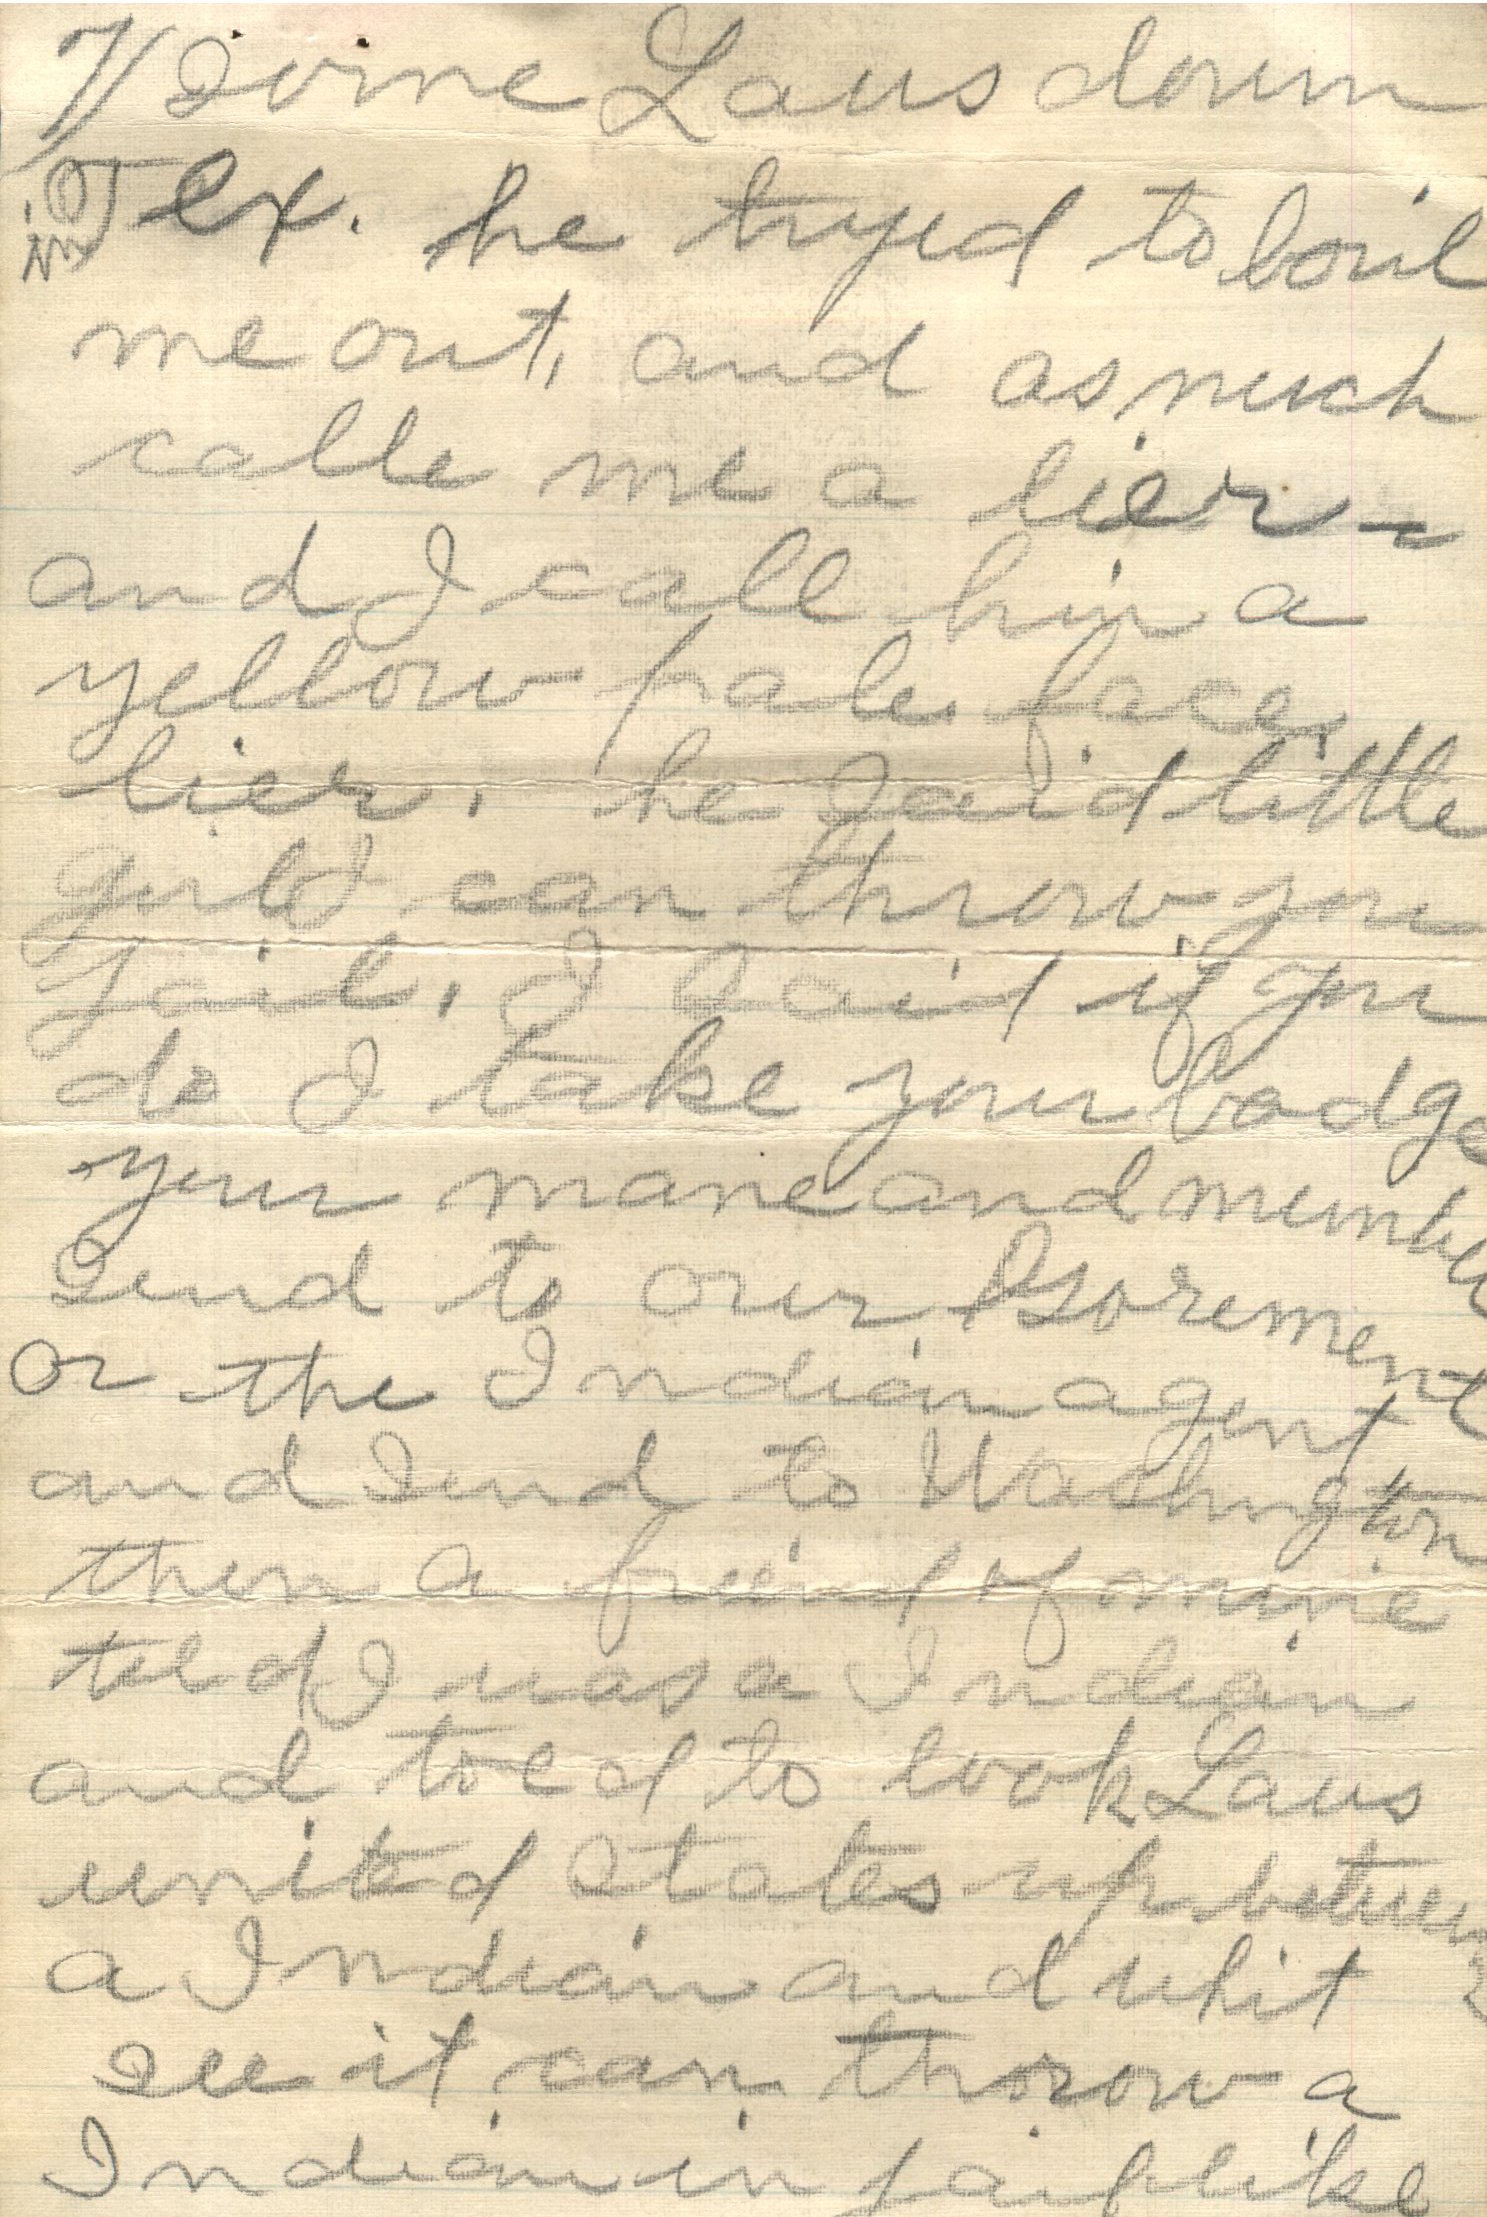 7/ Some Laws down
in Tex. he tryed to boil
me out, and as much
calle me a lier -
and I call him a
yellow pale face,
lier. he Said little
girld can throw you
Jail, I Said if you
do I take your badge
your mane and number
Send to our Goverment
or the Indian agent
and Send to Washington
then a friend of mine
teld I was a Indian
and toed to look Laws
united States up between
a Indian and whit
See it can thorow a
Indian in jail like